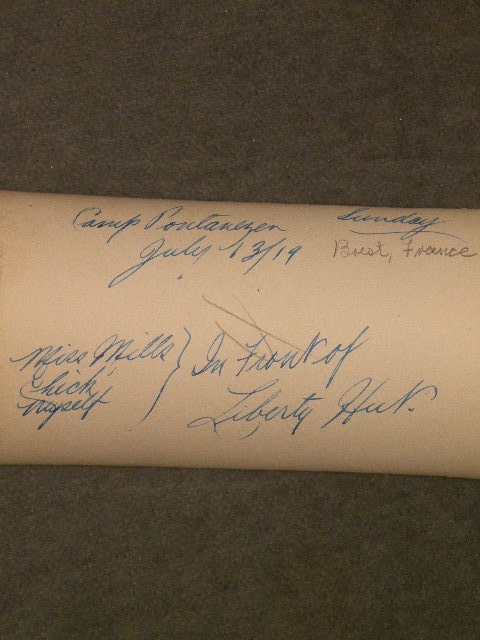 Camp Pontanezen Sunday
July 13/19 Brest, France
Miss Mills } In Front of
"Chick"
Myself Liberty Hut.